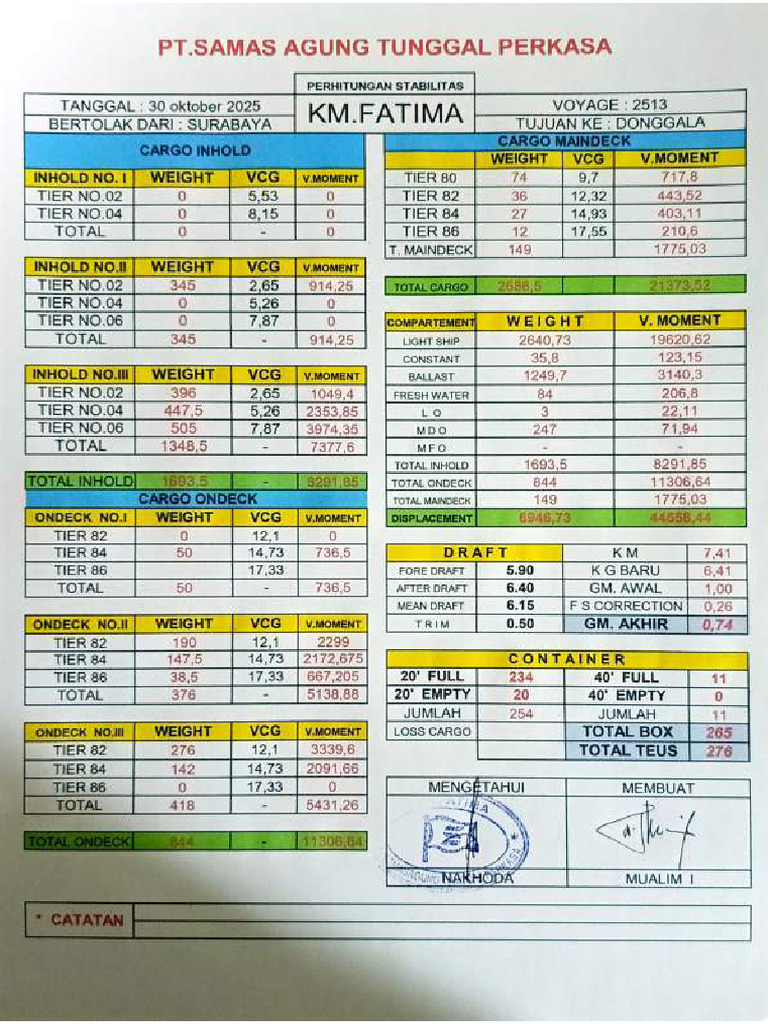 PT.SAMAS AGUNG TUNGGAL PERKASA
PERHITUNGAN STABILITAS
KM.FATIMA
TANGGAL : 30 oktober 2025
BERTOLAK DARI : SURABAYA
VOYAGE : 2513
TUJUAN KE : DONGGALA
CARGO INHOLD
INHOLD NO. I WEIGHT VCG V.MOMENT
TIER NO.02 0 5,53 0
TIER NO.04 0 8,15 0
TOTAL 0 - 0
INHOLD NO.II WEIGHT VCG V.MOMENT
TIER NO.02 345 2,65 914,25
TIER NO.04 0 5,26 0
TIER NO.06 0 7,87 0
TOTAL 345 - 914,25
INHOLD NO.III WEIGHT VCG V.MOMENT
TIER NO.02 396 2,65 1049,4
TIER NO.04 447,5 5,26 2353,85
TIER NO.06 505 7,87 3974,35
TOTAL 1348,5 - 7377,6
TOTAL INHOLD 1693,5 - 8291,85
CARGO ONDECK
ONDECK NO.I WEIGHT VCG V.MOMENT
TIER 82 0 12,1 0
TIER 84 50 14,73 736,5
TIER 86 17,33
TOTAL 50 - 736,5
ONDECK NO.II WEIGHT VCG V.MOMENT
TIER 82 190 12,1 2299
TIER 84 147,5 14,73 2172,675
TIER 86 38,5 17,33 667,205
TOTAL 376 - 5138,88
ONDECK NO.III WEIGHT VCG V.MOMENT
TIER 82 276 12,1 3339,6
TIER 84 142 14,73 2091,66
TIER 86 0 17,33 0
TOTAL 418 - 5431,26
TOTAL ONDECK 844 - 11306,64
CARGO MAINDECK
WEIGHT VCG V.MOMENT
TIER 80 74 9,7 717,8
TIER 82 36 12,32 443,52
TIER 84 27 14,93 403,11
TIER 86 12 17,55 210,6
T. MAINDECK 149 1775,03
TOTAL CARGO 2686,5 21373,52
COMPARTEMENT WEIGHT V. MOMENT
LIGHT SHIP 2640,73 19620,62
CONSTANT 35,8 123,15
BALLAST 1249,7 3140,3
FRESH WATER 84 206,8
L O 3 22,11
M D O 247 71,94
M F O - -
TOTAL INHOLD 1693,5 8291,85
TOTAL ONDECK 844 11306,64
TOTAL MAINDECK 149 1775,03
DISPLACEMENT 6946,73 44558,44
DRAFT
FORE DRAFT 5.90
AFTER DRAFT 6.40
MEAN DRAFT 6.15
TRIM 0.50
K M 7,41
K G BARU 6,41
GM. AWAL 1,00
F S CORRECTION 0,26
GM. AKHIR 0,74
CONTAINER
20' FULL 234 40' FULL 11
20' EMPTY 20 40' EMPTY 0
JUMLAH 254 JUMLAH 11
LOSS CARGO TOTAL BOX 265
TOTAL TEUS 276
MENGETAHUI MEMBUAT
NAKHODA MUALIM I
* CATATAN